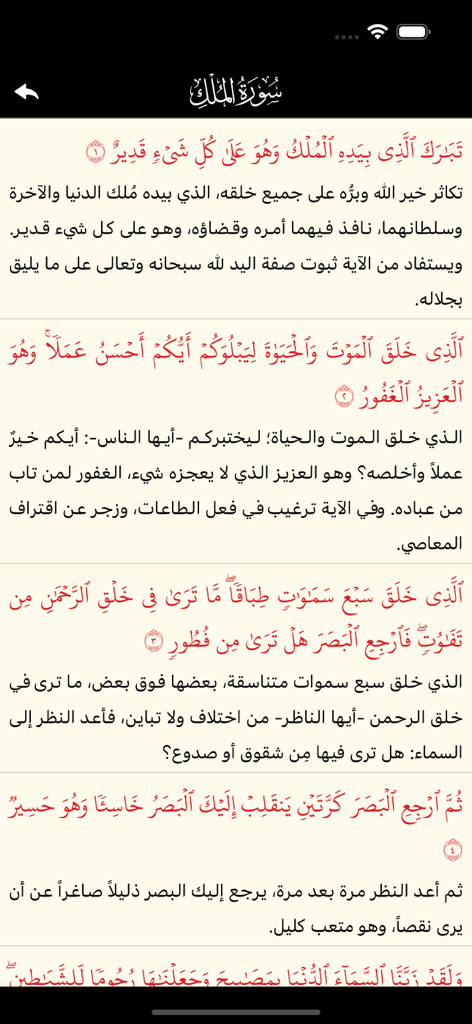 سُورَةُ المُلْكِ
تَبَٰرَكَ ٱلَّذِى بِيَدِهِ ٱلْمُلْكُ وَهُوَ عَلَىٰ كُلِّ شَىْءٍۢ قَدِيرٌ ١
تكاثر خير الله وبرُّه على جميع خلقه، الذي بيده مُلك الدنيا والآخرة
وسلطانهما، نافذ فيهما أمره وقضاؤه، وهو على كل شيء قدير.
ويستفاد من الآية ثبوت صفة اليد لله سبحانه وتعالى على ما يليق
بجلاله.
ٱلَّذِى خَلَقَ ٱلْمَوْتَ وَٱلْحَيَوٰةَ لِيَبْلُوَكُمْ أَيُّكُمْ أَحْسَنُ عَمَلًۭا ۚ وَهُوَ
ٱلْعَزِيزُ ٱلْغَفُورُ ٢
الذي خلق الموت والحياة؛ ليختبركم -أيها الناس-: أيكم خيرٌ
عملاً وأخلصه؟ وهو العزيز الذي لا يعجزه شيء، الغفور لمن تاب
من عباده. وفي الآية ترغيب في فعل الطاعات، وزجر عن اقتراف
المعاصي.
ٱلَّذِى خَلَقَ سَبْعَ سَمَٰوَٰتٍۢ طِبَاقًۭا ۖ مَّا تَرَىٰ فِى خَلْقِ ٱلرَّحْمَٰنِ مِن
تَفَٰوُتٍۢ ۖ فَٱرْجِعِ ٱلْبَصَرَ هَلْ تَرَىٰ مِن فُطُورٍۢ ٣
الذي خلق سبع سموات متناسقة، بعضها فوق بعض، ما ترى في
خلق الرحمن -أيها الناظر- من اختلاف ولا تباين، فأعد النظر إلى
السماء: هل ترى فيها مِن شقوق أو صدوع؟
ثُمَّ ٱرْجِعِ ٱلْبَصَرَ كَرَّتَيْنِ يَنقَلِبْ إِلَيْكَ ٱلْبَصَرُ خَاسِئًۭا وَهُوَ حَسِيرٌۭ
٤
ثم أعد النظر مرة بعد مرة، يرجع إليك البصر ذليلاً صاغراً عن أن
يرى نقصاً، وهو متعب كليل.
وَلَقَدْ زَيَّنَّا ٱلسَّمَآءَ ٱلدُّنْيَا بِمَصَٰبِيحَ وَجَعَلْنَٰهَا رُجُومًۭا لِّلشَّيَٰطِينِ ۖ